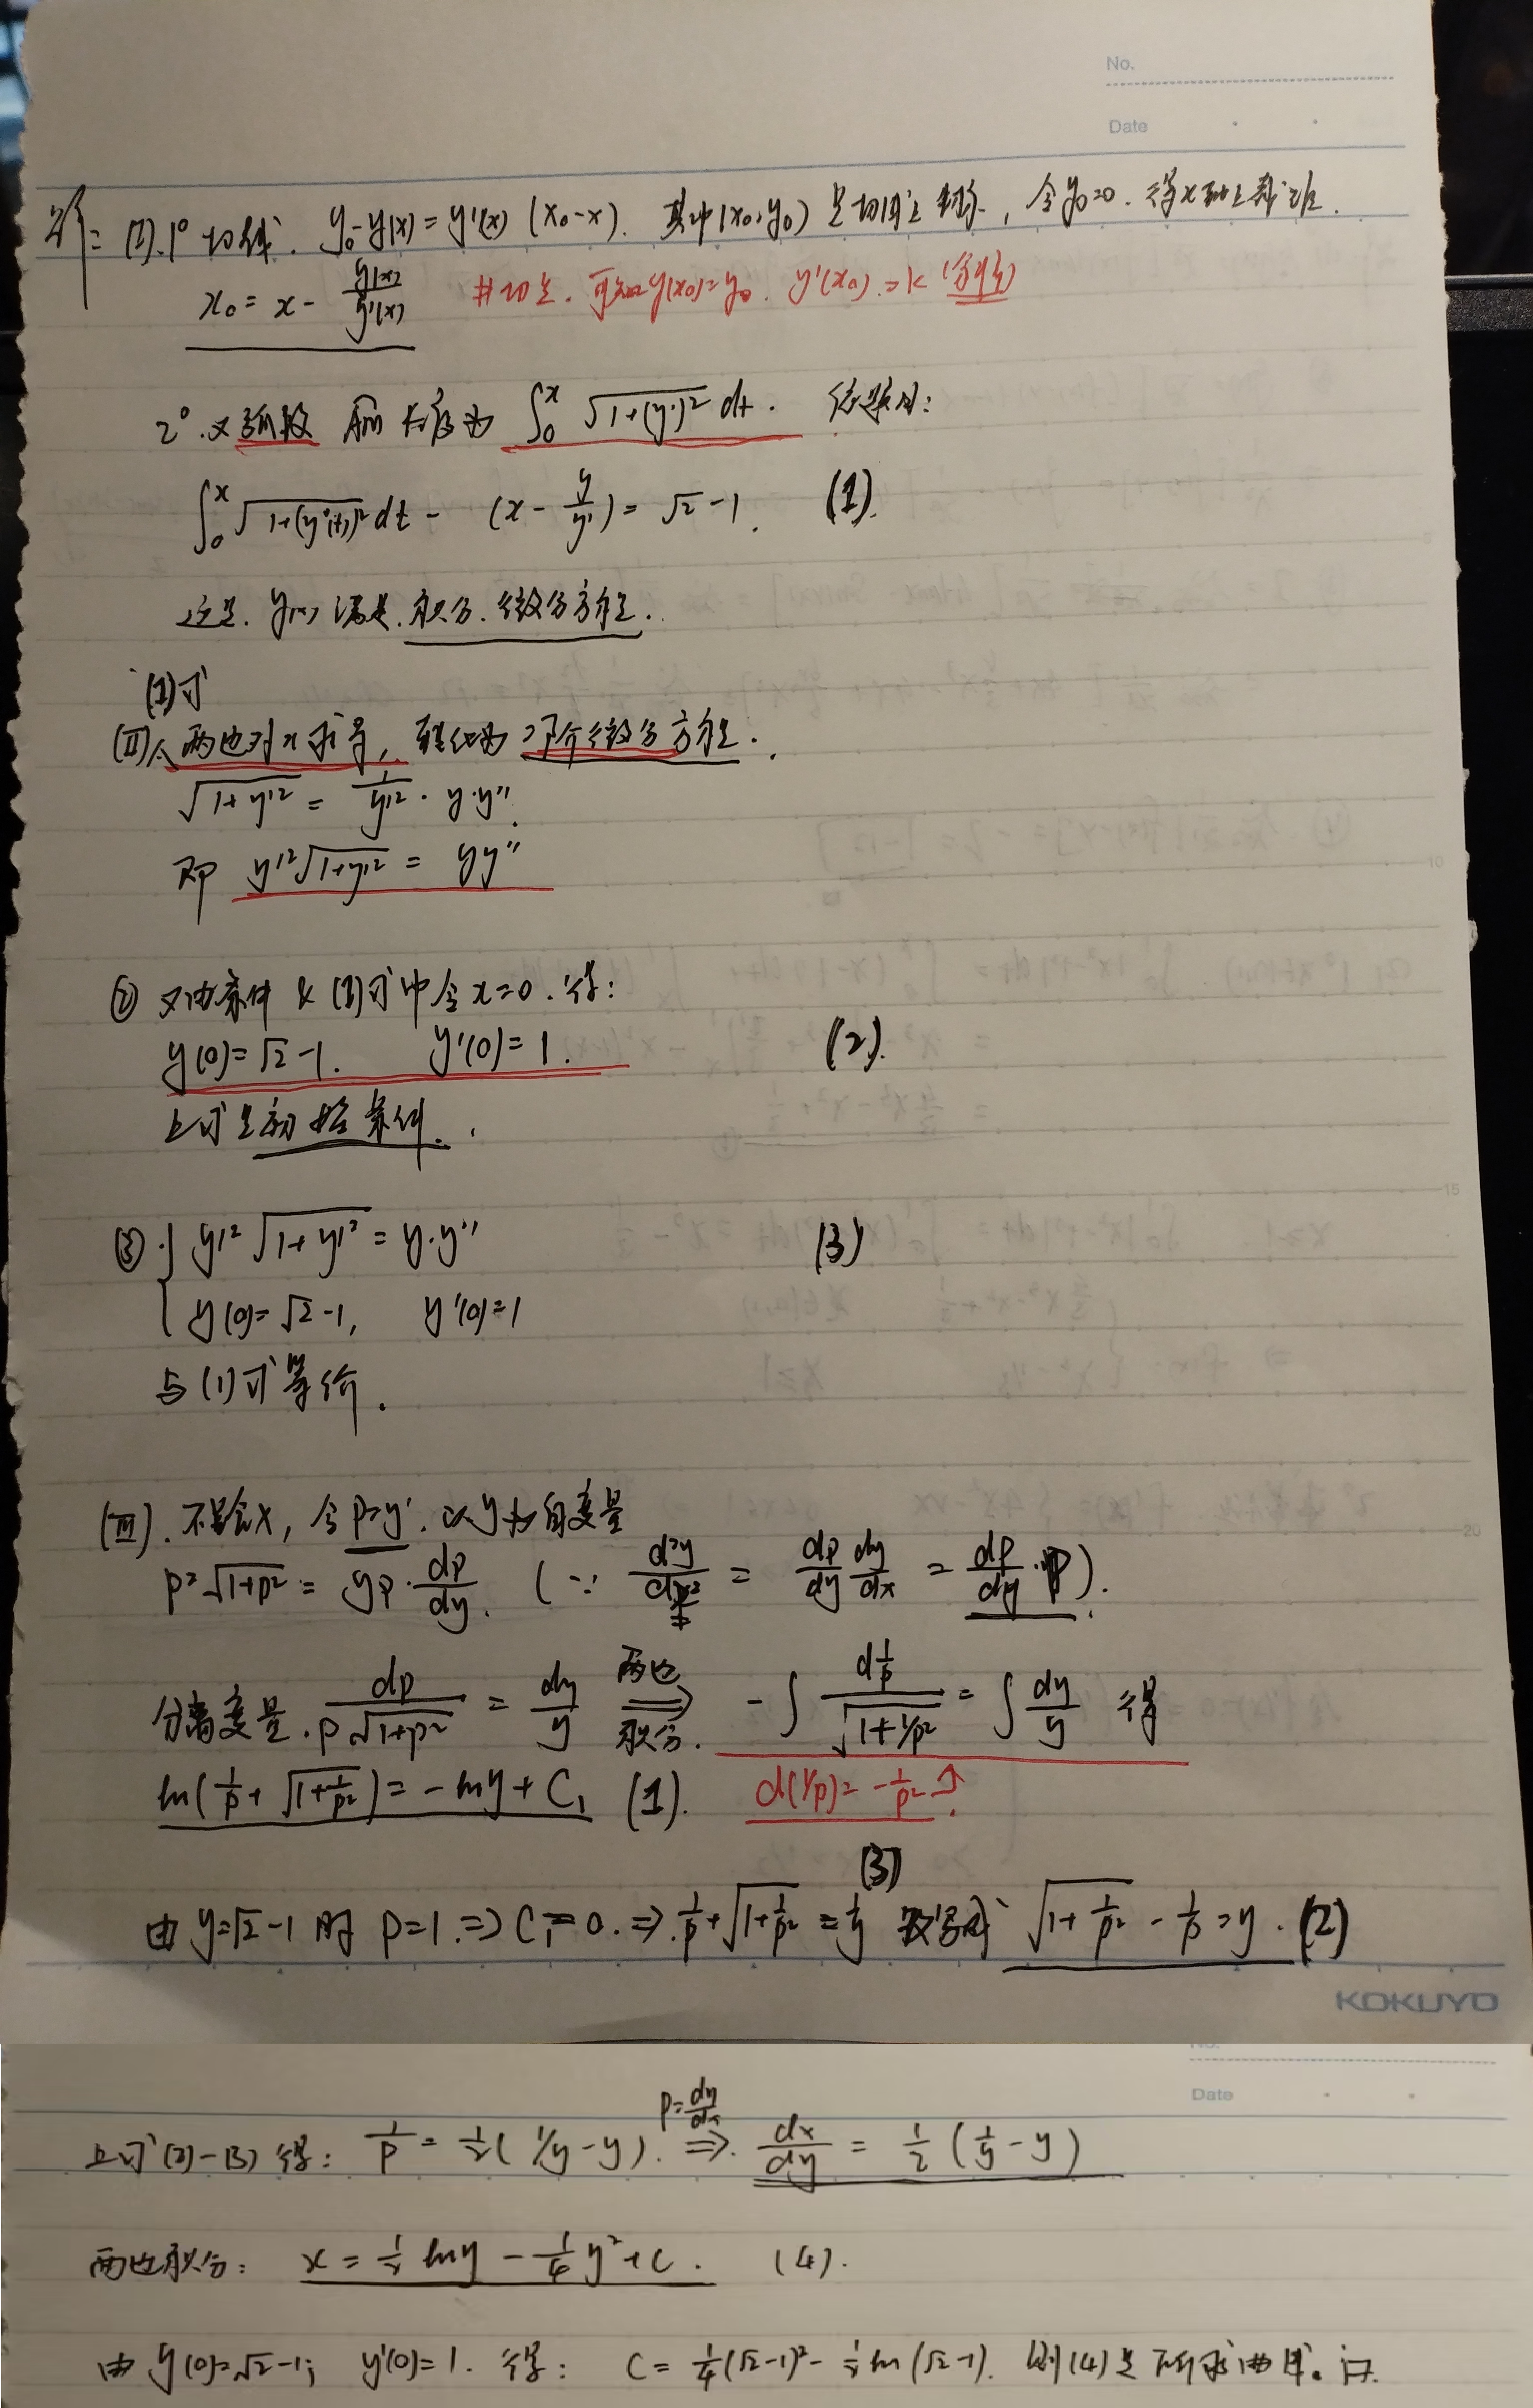 No.
Date
解: (I). 1° 切线. y₀-y(x)=y'(x)(x₀-x). 其中(x₀,y₀)是切线上的点, 令y₀=0. 得x轴上截距
x₀ = x - y(x)/y'(x) #切点. 可知y(x₀)=y₀. y'(x₀)=k (斜率)
2°. 又弧段 长度为 ∫₀ˣ √(1+(y')²) dt. 依题知:
∫₀ˣ √(1+(y'(t))²) dt - (x - y/y') = √2-1. (1).
这是. y(x)满足. 积分. 微分方程.
(1)式
(II) 两边对x求导, 转化为 二阶微分方程.
√(1+y'²) = 1/y'² · y·y''.
即 y'²√(1+y'²) = yy''
② 又由条件 & (1)式中令x=0. 得:
y(0)=√2-1. y'(0)=1. (2).
上式是初始条件.
③ { y'²√(1+y'²) = y·y'' (3)
y(0)=√2-1, y'(0)=1
与(1)式等价.
(III). 不显含x, 令p=y'. 以y为自变量
p²√(1+p²) = yp·dp/dy. (∵ d²y/dx² = dp/dy dy/dx = dp/dy·p).
分离变量. dp/(p√(1+p²)) = dy/y 两边积分 ⟹ -∫ d(1/p)/√(1+1/p²) = ∫ dy/y 得
ln(1/p + √(1+1/p²)) = -lny + C₁ (1). d(1/p) = -1/p² ↑.
(3)
由 y=√2-1 时 p=1. ⇒ C₁=0. ⇒ 1/p+√(1+1/p²) = 1/y 改写成 √(1+1/p²) - 1/p = y. (2)
KOKUYO
Date
上式(2)-(3) 得: 1/p = 1/2(1/y-y). p=dy/dx ⟹ dx/dy = 1/2(1/y - y)
两边积分: x = 1/2 lny - 1/4 y² + C. (4).
由 y(0)=√2-1; y'(0)=1. 得: C = 1/4(√2-1)² - 1/2 ln(√2-1). 则(4)是所求曲线.